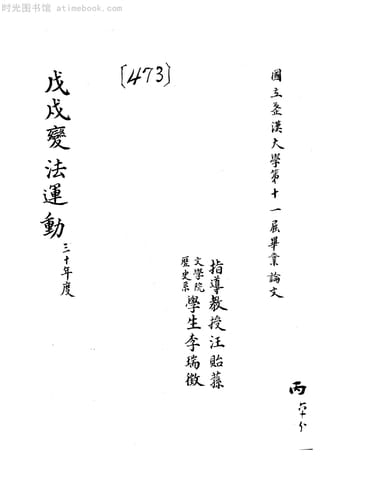 时光图书馆 atimebook.com
國立武漢大學第十一屆畢業論文
丙
指導教授汪貽蓀
文學院
歷史系
學生李瑞徵
[473]
戊戌變法運動
三十年度